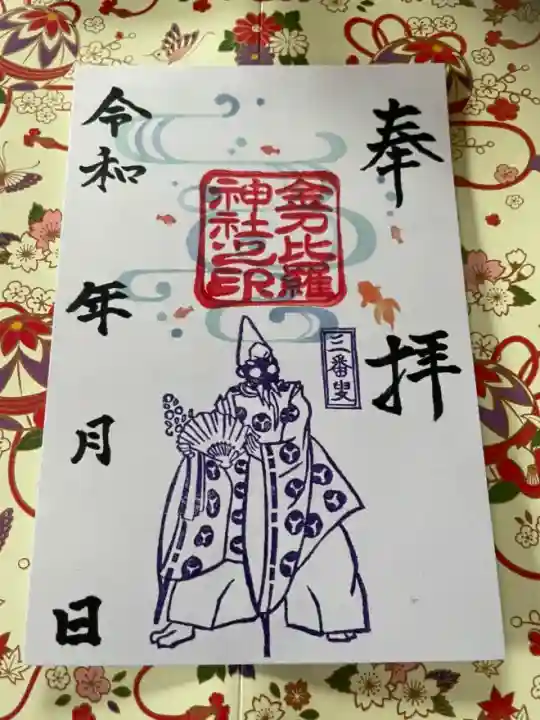 奉拝
金刀比羅
神社之印
三番叟
令和 年 月 日